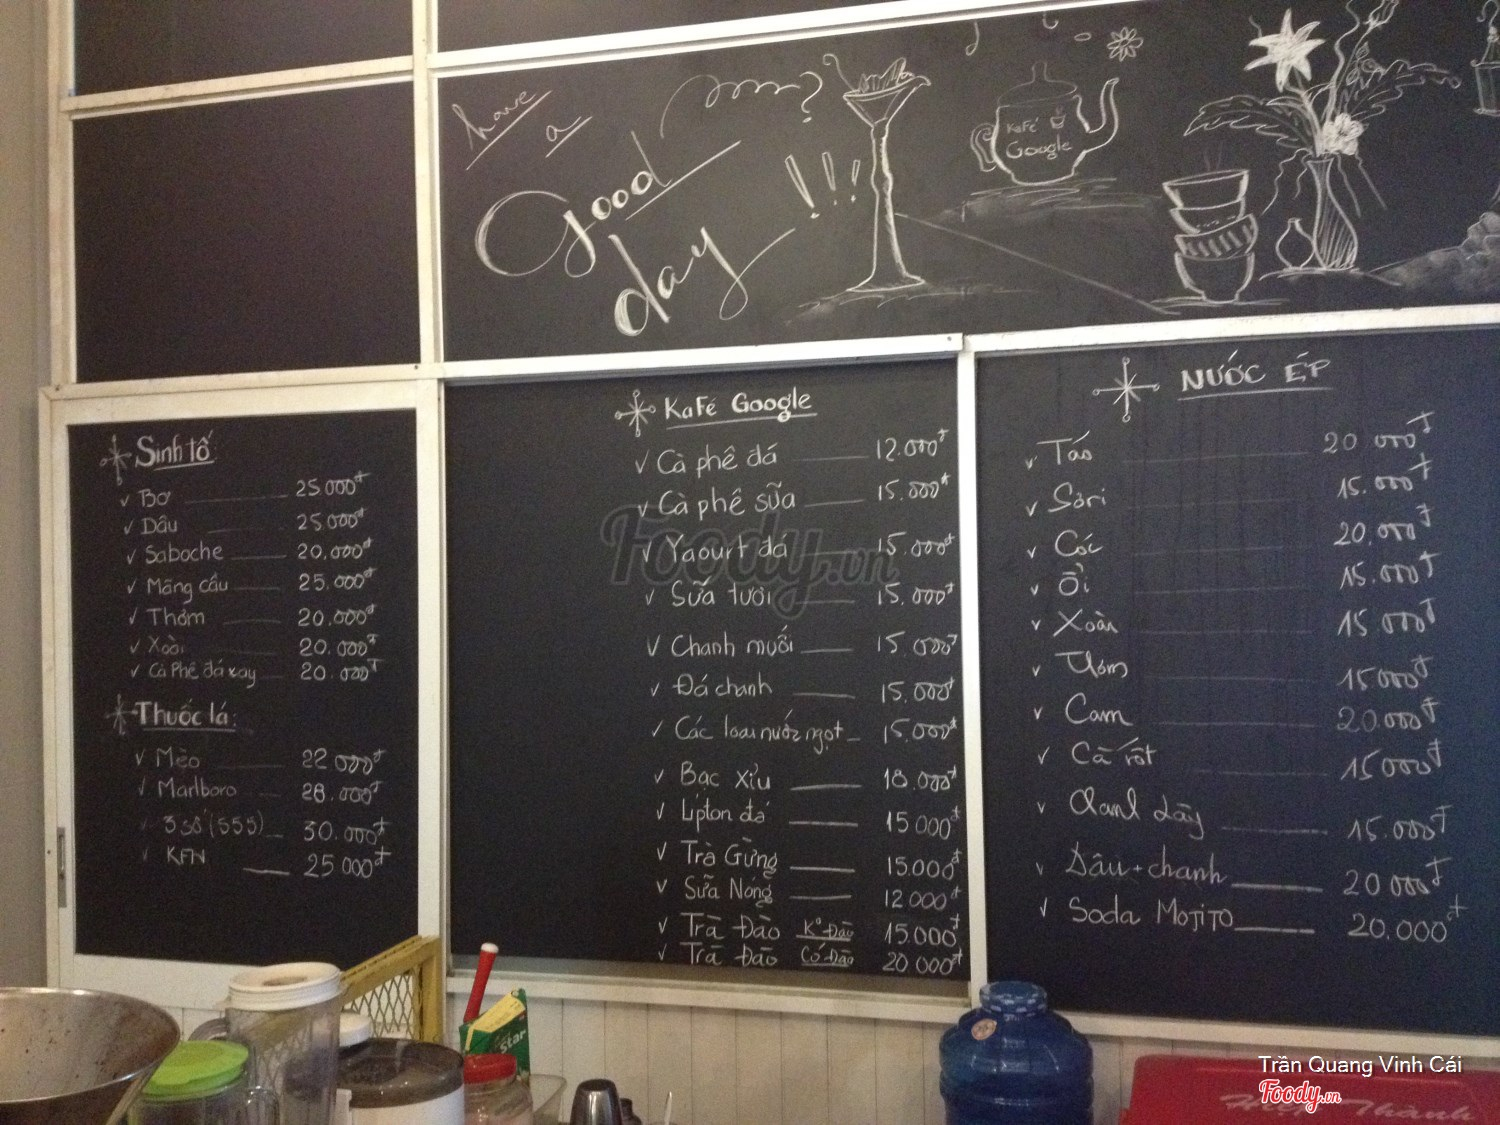 have
a
Good
day !!!
KaFé
Google
Sinh tố:
Bơ 25.000đ
Dâu 25.000đ
Saboche 20.000đ
Mãng cầu 25.000đ
Thơm 20.000đ
Xoài 20.000đ
Cà Phê đá xay 20.000đ
Thuốc lá:
Mèo 22 000đ
Marlboro 28.000đ
3 Số (555) 30.000đ
25 000đ
KaFé Google
Cà phê đá 12.000đ
Cà phê sữa 15.000đ
Yaourt đá 15.000đ
Sữa tươi 15.000đ
Chanh muối 15 000đ
Đá chanh 15.000đ
Các loại nước ngọt 15.000đ
Bạc Xỉu 18.000đ
Lipton đá 15 000đ
Trà Gừng 15.000đ
Sữa Nóng 12 000đ
Trà Đào Kº Đào 15.000đ
Trà Đào Có Đào 20 000đ
NƯỚC ÉP
Táo 20 000đ
Sơri 15.000đ
Cóc 20,000đ
Ổi 15.000đ
Xoài 15 000đ
Thơm 15000đ
Cam 20.000đ
Cà rốt 15000đ
Chanh dây 15.000đ
Dâu + chanh 20 000đ
Soda MOJITO 20.000đ
Foody.vn
Star
Trần Quang Vinh Cái
Foody.vn
Hiệp Thành